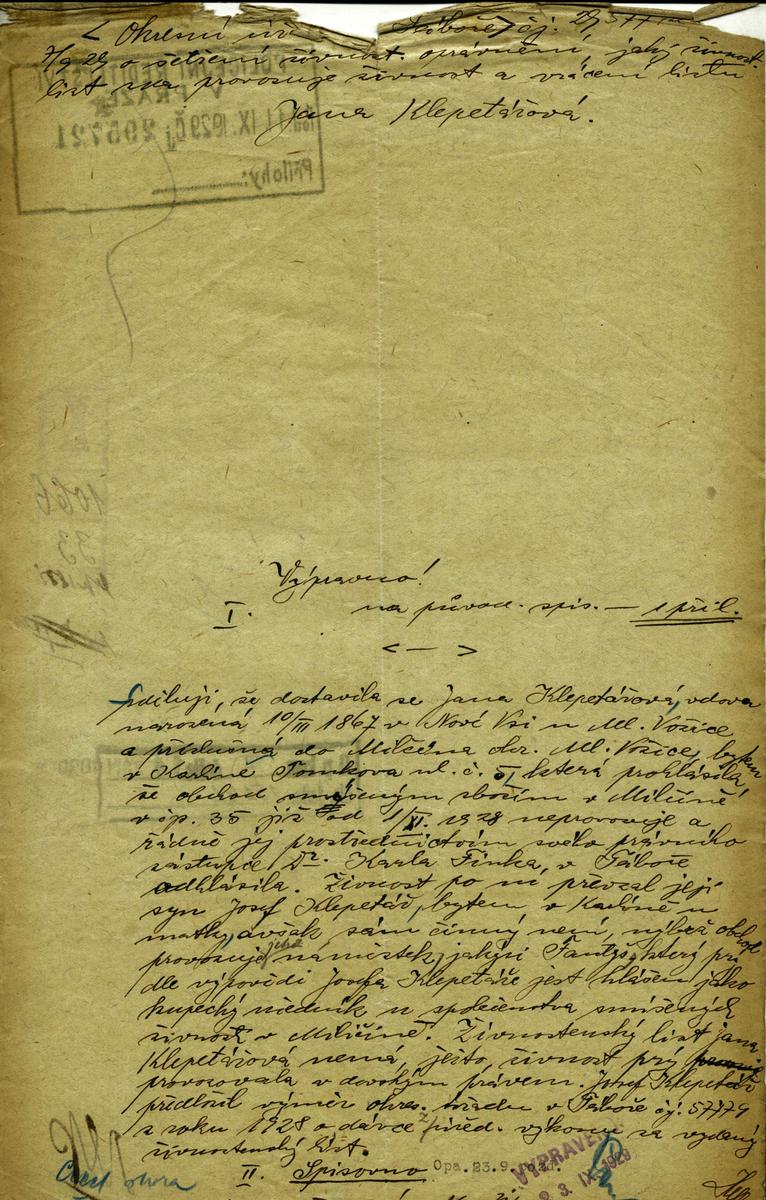 Okresní Táboře, čj.
7/9 29 o šetření živnost. oprávnění, jaký živnost.
list na provozuje živnost a vrácení listu
Jana Klepetářová.
1929 205721
Přílohy:
Výpravno!
I. na původ. spis. — 1 příl.
< — >
Sděluji, že dostavila se Jana Klepetářová, vdova
narozená 10/III 1867 v Nové Vsi u Ml. Vožice
a příslušná do Miličína okr. Ml. Vožice, bytem
v Karlíně Tomkova ul. č. 5, která prohlásila,
že obchod smíšeným zbožím v Miličíně
v čp. 35 již od 1/XI. 1928 neprovozuje a
řádně jej prostřednictvím svého právního
zástupce Dr. Karla Finka, v Táboře
odhlásila. Živnost po ní převzal její
syn Josef Klepetář, bytem v Karlíně u
matky, avšak sám činný není, nýbrž obchod
provozuje jeho náměstek, jakýsi který prý
dle výpovědi Josefa Klepetáře jest hlášen jako
kupecký úředník u společenstva smíšených
živností v Miličíně. Živnostenský list Jana
Klepetářová nemá, ježto živnost prý
provozovala vdovským právem. Josef Klepetář
předložil výměr okres. úřadu v Táboře čj. 57779
z roku 1928 o dávce z úřed. výkonu za vydaný
živnostenský list.
II. Spisovno Opa. 23.9.1929.
VYPRAVENO
23. IX. 1929